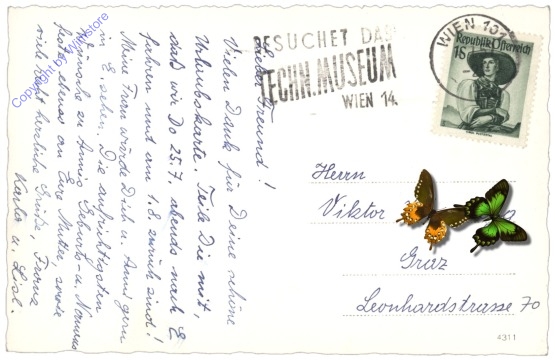 Lieber Freund!
Vielen Dank für Deine schöne
Urlaubskarte. Teile Dir mit,
daß wir Do 25.7. abends nach E
fahren und am 1.8. zurück sind!
Meine Frau würde Dich u. Anni gern
in E. sehen. Die aufrichtigsten
Wünsche zu Annis Geburts- u. Namens
feste ebenso an Eure Mutter sowie
recht herzliche Grüße, Franz
Karla u. Lisl.
BESUCHET DAS
TECHN. MUSEUM
WIEN 14.
WIEN
1S
Republik Österreich
Herrn
Viktor
Graz
Leonhardstrasse 70
4311
Copyright by Winkstore